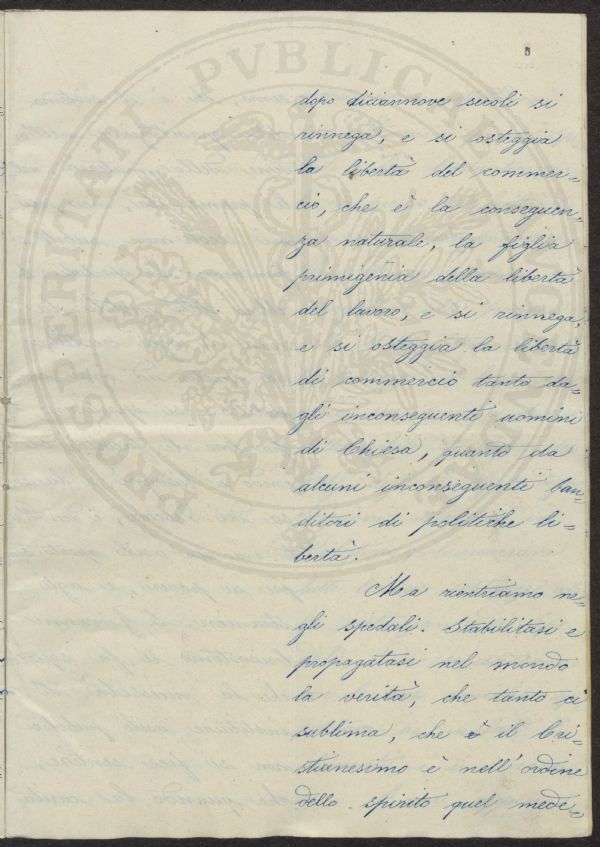 5
dopo diciannove secoli si
rinnega, e si osteggia
la libertà del commer-
cio, che è la conseguen-
za naturale, la figlia
primigenia della libertà
del lavoro, e si rinnega,
e si osteggia la libertà
di commercio tanto da-
gli inconseguenti uomini
di Chiesa, quanto da
alcuni inconseguenti ban-
ditori di politiche li-
bertà.
Ma rientriamo ne-
gli spedali. Stabilitasi e
propagatasi nel mondo
la verità, che tanto ci
sublima, che è il Cri-
stianesimo è nell'ordine
dello spirito quel mede-
PROSPERITATI PVBLICAE